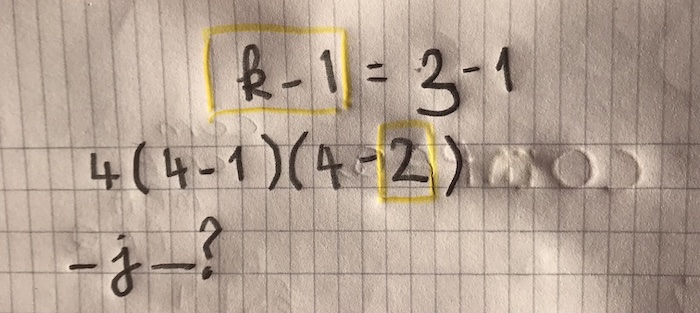 k - 1 = 3 - 1
4(4-1)(4-2)
- j - ?